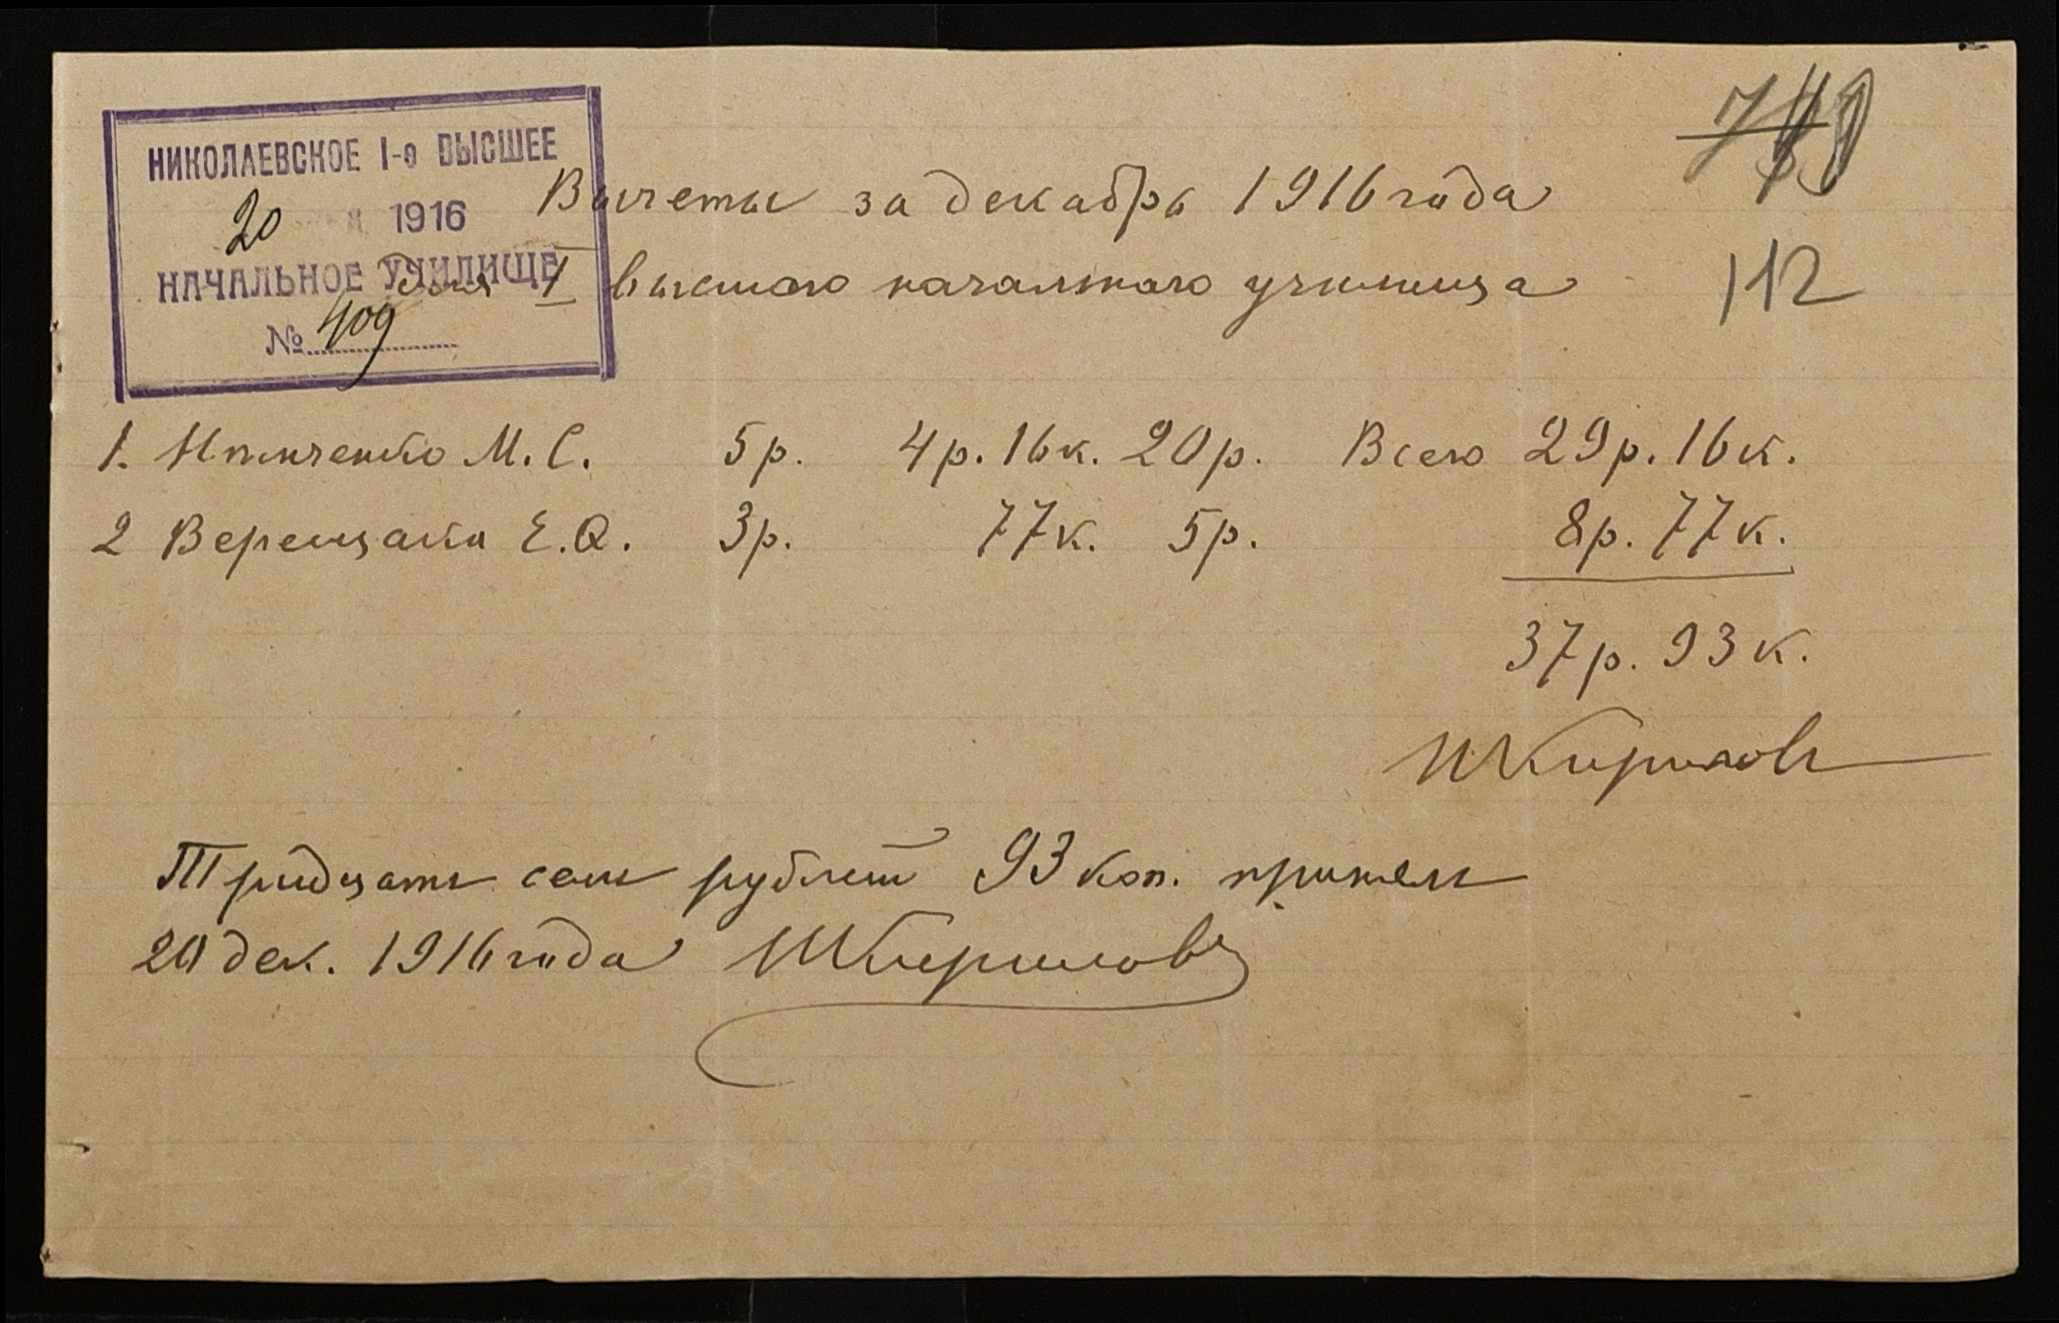 НИКОЛАЕВСКОЕ I-е ВЫСШЕЕ
20 1916
НАЧАЛЬНОЕ УЧИЛИЩЕ
№ 409
Вычеты за декабрь 1916 года
для I высшаго начальнаго училища
112
1. М. С. 5 р. 4 р. 16 к. 20 р. Всего 29 р. 16 к.
2 Верещака Е. 3 р. 77 к. 5 р. 8 р. 77 к.
37 р. 93 к.
Тридцать семь рублей 93 коп. принял
20 дек. 1916 года